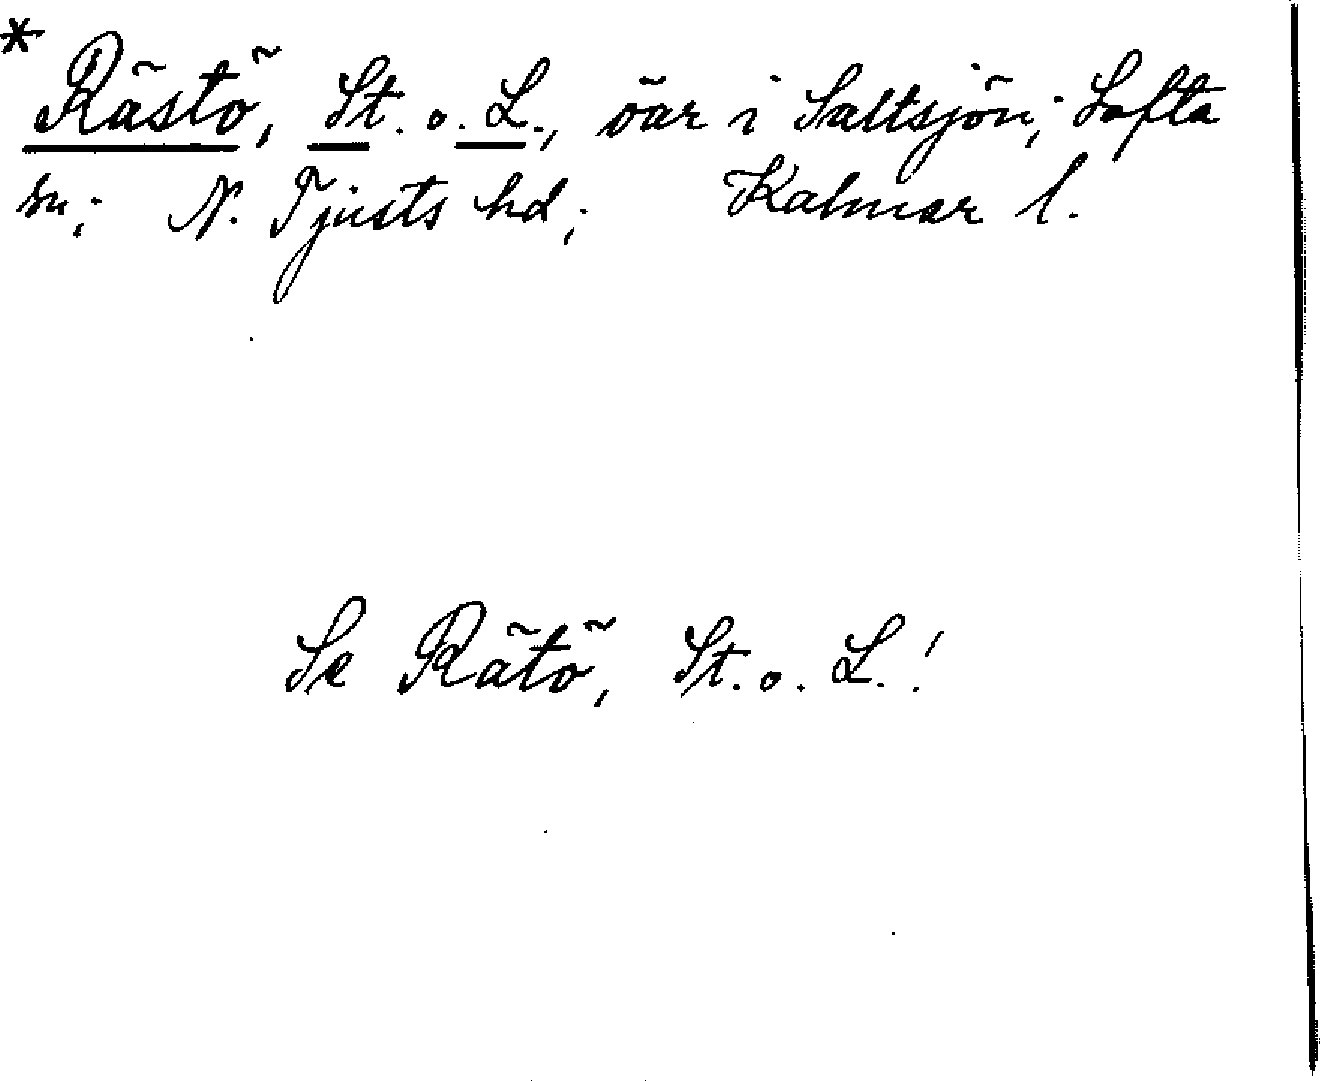 * Rästö, St. o. L., öar i Saltsjön; Lofta
sn; N. Tjusts hd; Kalmar l.
Se Rätö, St. o. L.!